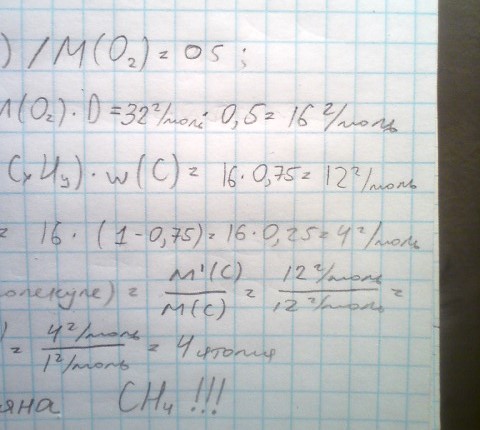 ) / M(O₂) = 0 5 ;
M(O₂) · D = 32 г/моль · 0,5 = 16 г/моль
CₓHᵧ) · w(C) = 16 · 0,75 = 12 г/моль
= 16 · (1 - 0,75) = 16 · 0,25 = 4 г/моль
олекуле) = M'(C) / M(C) = 12 г/моль / 12 г/моль =
= 4 г/моль / 1 г/моль = 4 атома
яна CH₄ !!!